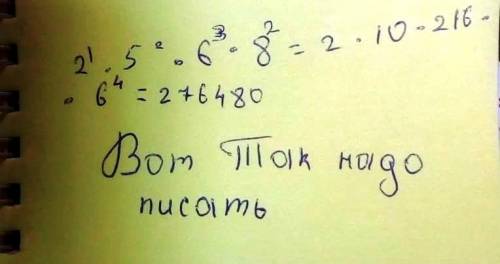 2¹ · 5² · 6³ · 8² = 2 · 10 · 216 ·
· 6⁴ = 276480
Вот Так надо
писать